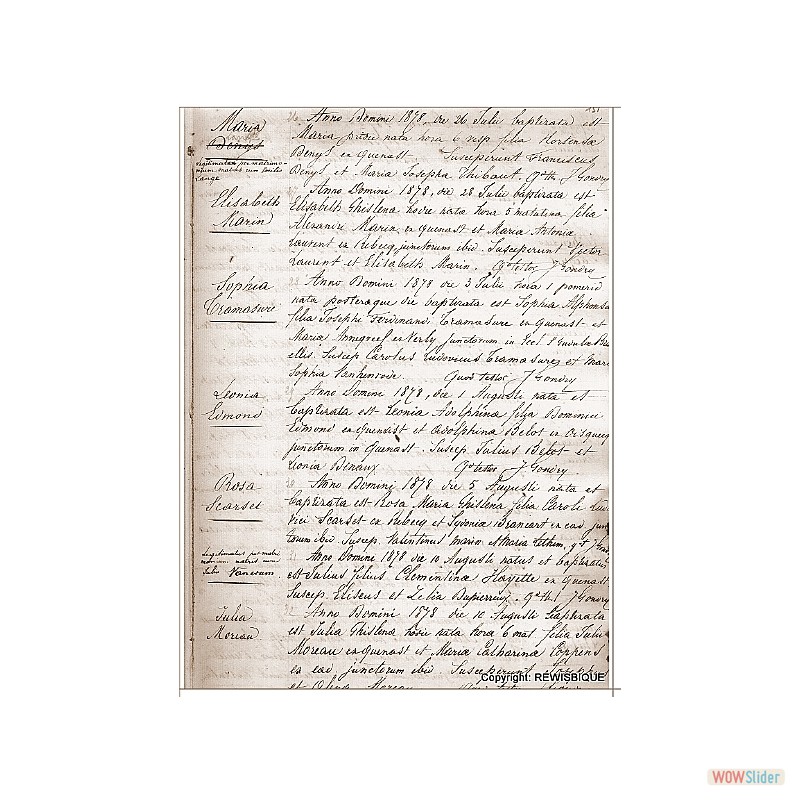 131
Maria
Denyst
Legitimata per matrimo-
nium matris cum
Lange
26 Anno Domini 1878, die 26 Julii baptizata est
Maria pridie nata hora 6 vesp filia Hortensæ
Denyst ex Quenast. Susceperunt Franciscus
Denyst et Maria Josepha Thibaut. J Gondry
Elisabeth
Marin
Anno Domini 1878, die 28 Julii baptizata est
Elisabeth Ghislena hodie nata hora 5 matutina filia
Alexandri Marin ex Quenast et Maria Antonia
Laurent ex Rebecq, junctorum ibid. Susceperunt Victor
Laurent et Elisabeth Marin. Qd testor J Gondry
Sophia
Cramasure
Anno Domini 1878 die 3 Julii hora 1 pomerid
nata posteraque die baptizata est Sophia Alphonsa
filia Josephi Ferdinandi Cramasure ex Quenast et
Maria ex Verly junctorum in
Suscep. Carolus Ludovicus Cramasure et Maria
Sophia Quod testor J Gondry
Leonia
Edmond
Anno Domini 1878, die 1 Augusti nata et
baptizata est Leonia Adolphina filia Dominici
Edmond ex Quenast et Adolphina Belot ex Oisquercq
junctorum in Quenast. Suscep. Julius Belot et
Leonia Benaux Qd testor J Gondry.
Rosa
Scarset
Anno Domini 1878 die 5 Augusti nata et
baptizata est Rosa Maria Ghislena filia Caroli Ludo
vici Scarset ex Rebecq et Sydonia Brancart ex ead junc
torum ibid. Suscep. Valentinus Marin et Maria q t J Gondry
Legitimatus per matri
monium matris cum
Julio Vanerum.
Anno Domini 1878 die 10 Augusti natus et baptizatus
est Julius filius Clementinæ Hayette ex Quenast
Suscep Eliseus et Lelia Dupierreux. Qd t J Gondry
Julia
Moreau
32 Anno Domini 1878 die 10 Augusti baptizata
est Julia Ghislena hodie nata hora 6 mat filia Julii
Moreau ex Quenast et Maria Catharina Coppens
ex ead junctorum ibid. Susceperunt Josephus
et Moreau
Copyright: REWISBIQUE
WOWSlider